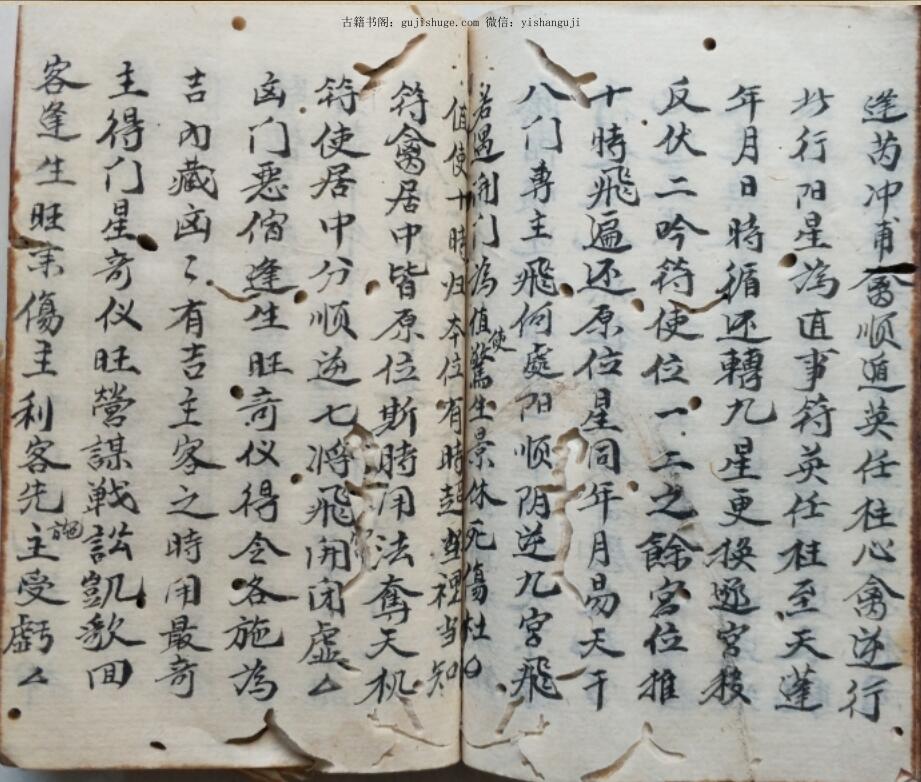 古籍书阁：gujishuge.com 微信：yishanguji
蓬芮冲甫禽顺遁英任柱心禽逆行
此行阳星為直事符英任柱至天蓬
年月日時循还轉九星更换逐宫移
反伏二吟符使位一二之餘宫位推
十時飛遍还原位星同年月易天干
八门專主飛何處阳顺阴逆九宫飛
若遇開门為值使驚生景休死傷杜
值使十時归本位有時超 禋当知
符禽居中皆原位斯時用法奪天机
符使居中分顺逆七将飛開闭虚
凶门惡宿逢生旺奇仪得令各施為
吉内藏凶凶有吉主客之時用最奇
主得门星奇仪旺營謀戦訟凯歌回
客逢生旺来傷主利客先主受虧